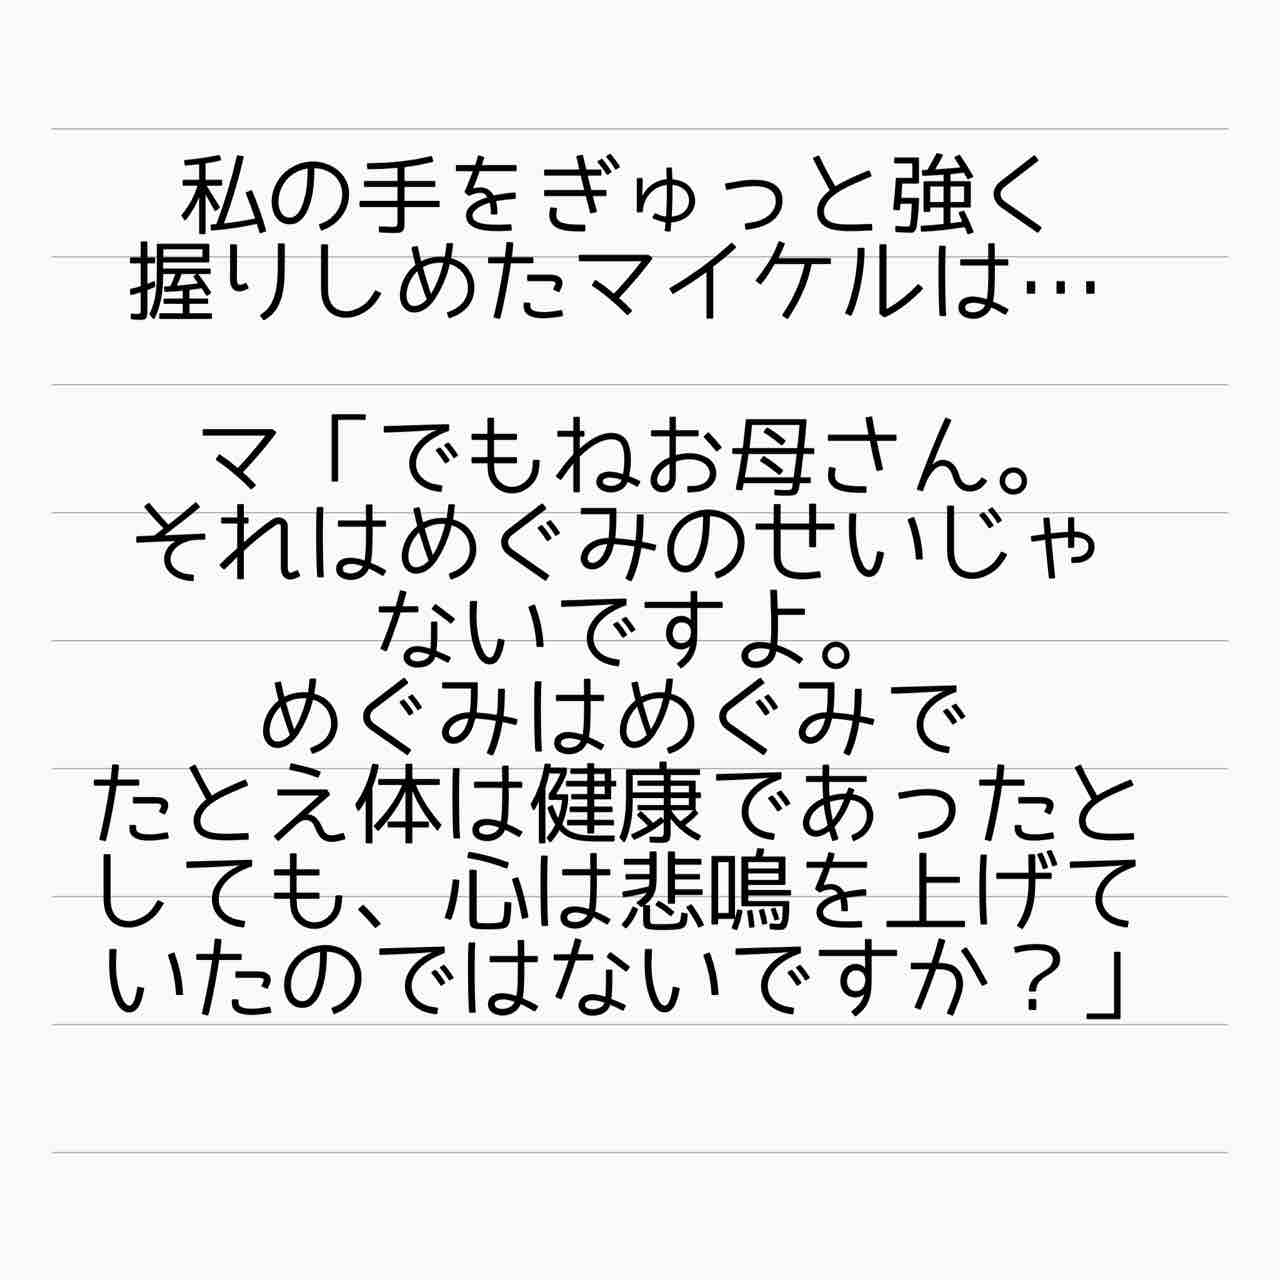 私の手をぎゅっと強く
握りしめたマイケルは…
マ「でもねお母さん。
それはめぐみのせいじゃ
ないですよ。
めぐみはめぐみで
たとえ体は健康であったと
しても、心は悲鳴を上げて
いたのではないですか？」